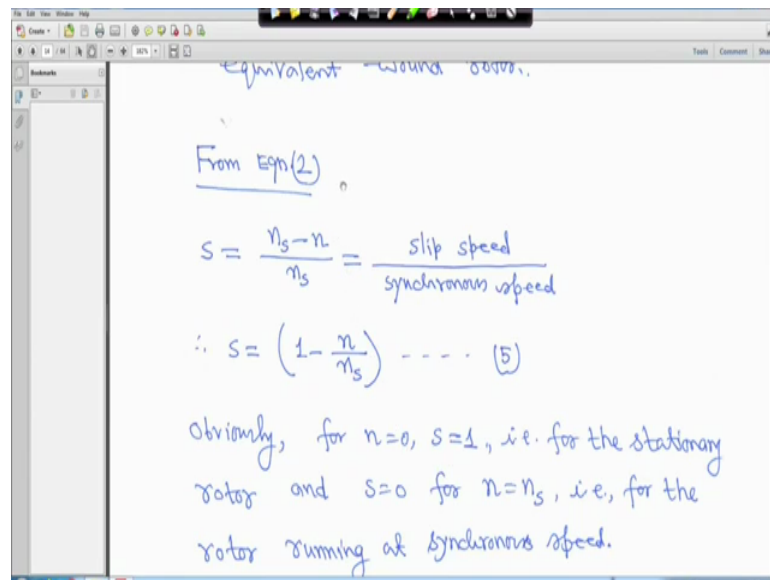 File Edit View Window Help
Create
14 / 14
182%
Tools Comment Share
Bookmarks
equivalent wound rotor.
From Eqn(2)
S = (n_s - n) / n_s = slip speed / synchronous speed
∴ S = (1 - n/n_s) ---- (5)
Obviously, for n=0, S=1, i.e. for the stationary
rotor and S=0 for n=n_s, i.e., for the
rotor running at synchronous speed.